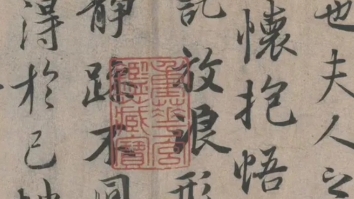 也夫人之
懷抱悟
託放浪形
靜躁不同
得於己快